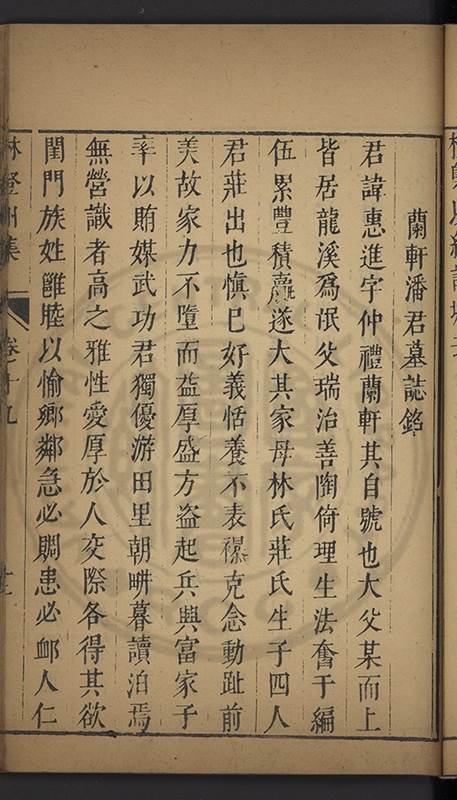 蘭軒潘君墓誌銘
君諱惠進字仲禮蘭軒其自號也大父某而上
皆居龍溪爲氓父瑞治善陶倚理生法奮于編
伍累豐積羸遂大其家母林氏莊氏生子四人
君莊出也愼已好義恬養不表襮克念動趾前
美故家力不墮而益厚盛方盗起兵興富家子
率以賄媒武功君獨優游田里朝畊暮讀泊焉
無營識者高之雅性愛厚於人交際各得其欲
閨門族姓雝睦以愉鄉鄰急必賙患必䘏人仁
林登州集
卷十九